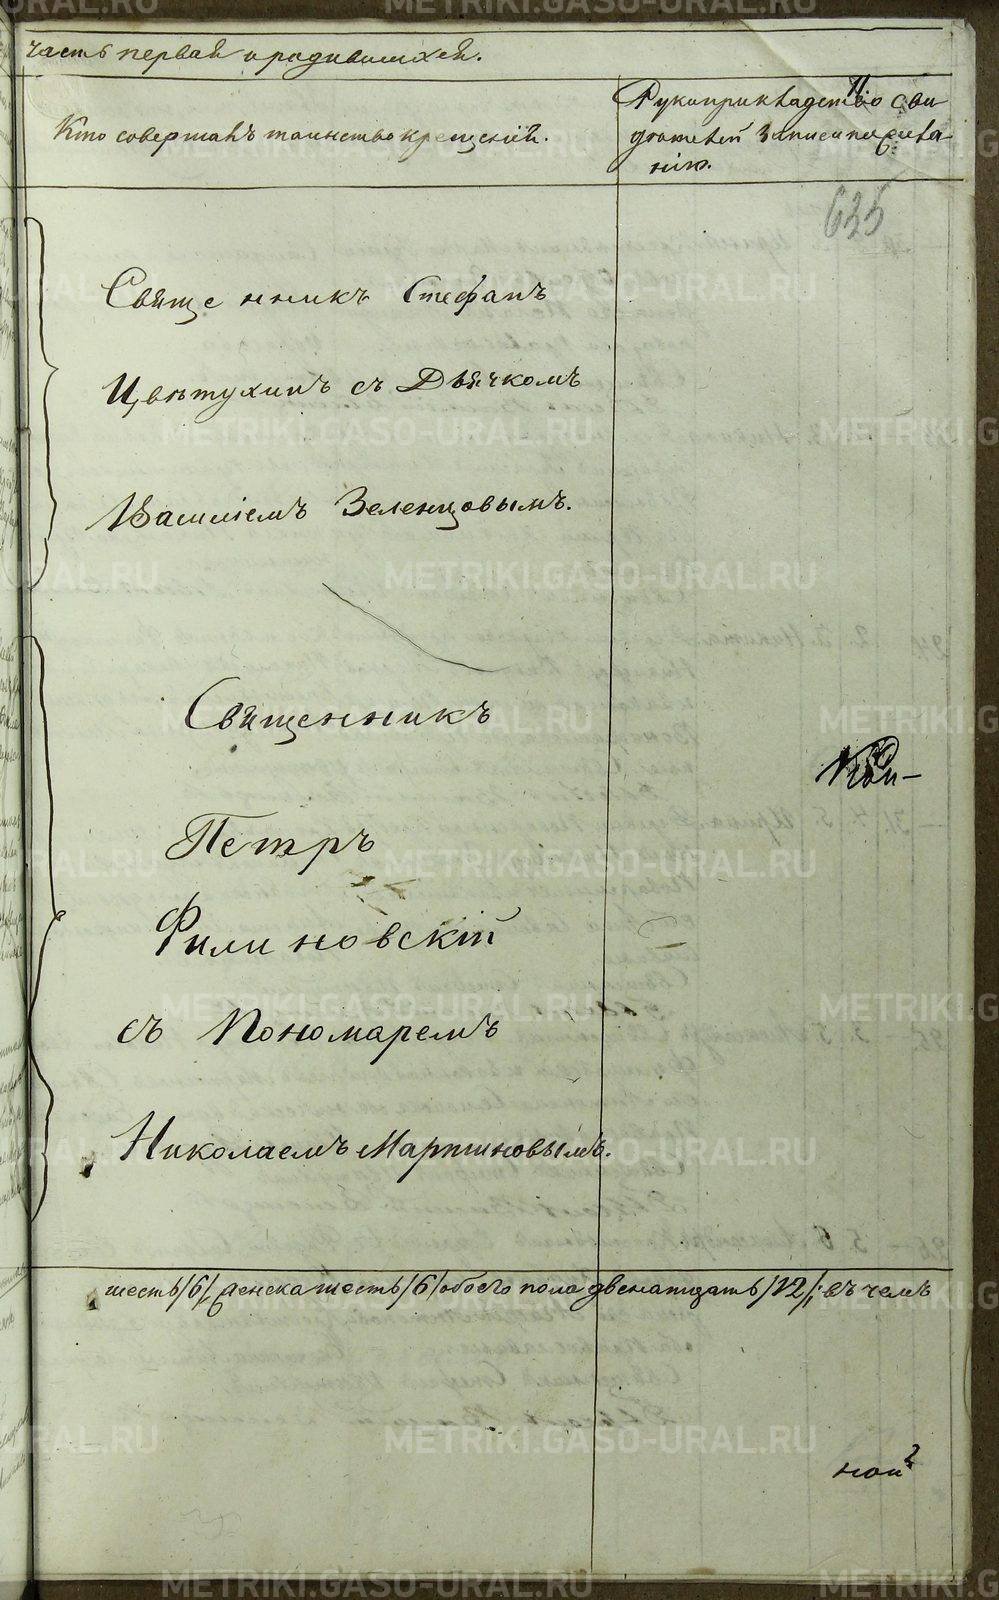 часть первая о родившихся.
11
Кто совершалъ таинство крещенія.
Рукоприкладство сви
дѣтелей записи по жела
нію.
635
Священникъ Стефанъ
Цвѣтухинъ съ Дьячкомъ
Василіемъ Зеленцовымъ.
Священникъ
Петръ
Филиновскій
съ Пономаремъ
Николаемъ Мартиновымъ.
шесть /6/, женска шесть /6/ обоего пола двенатцать /12/; въ чемъ
METRIKI.GASO-URAL.RU